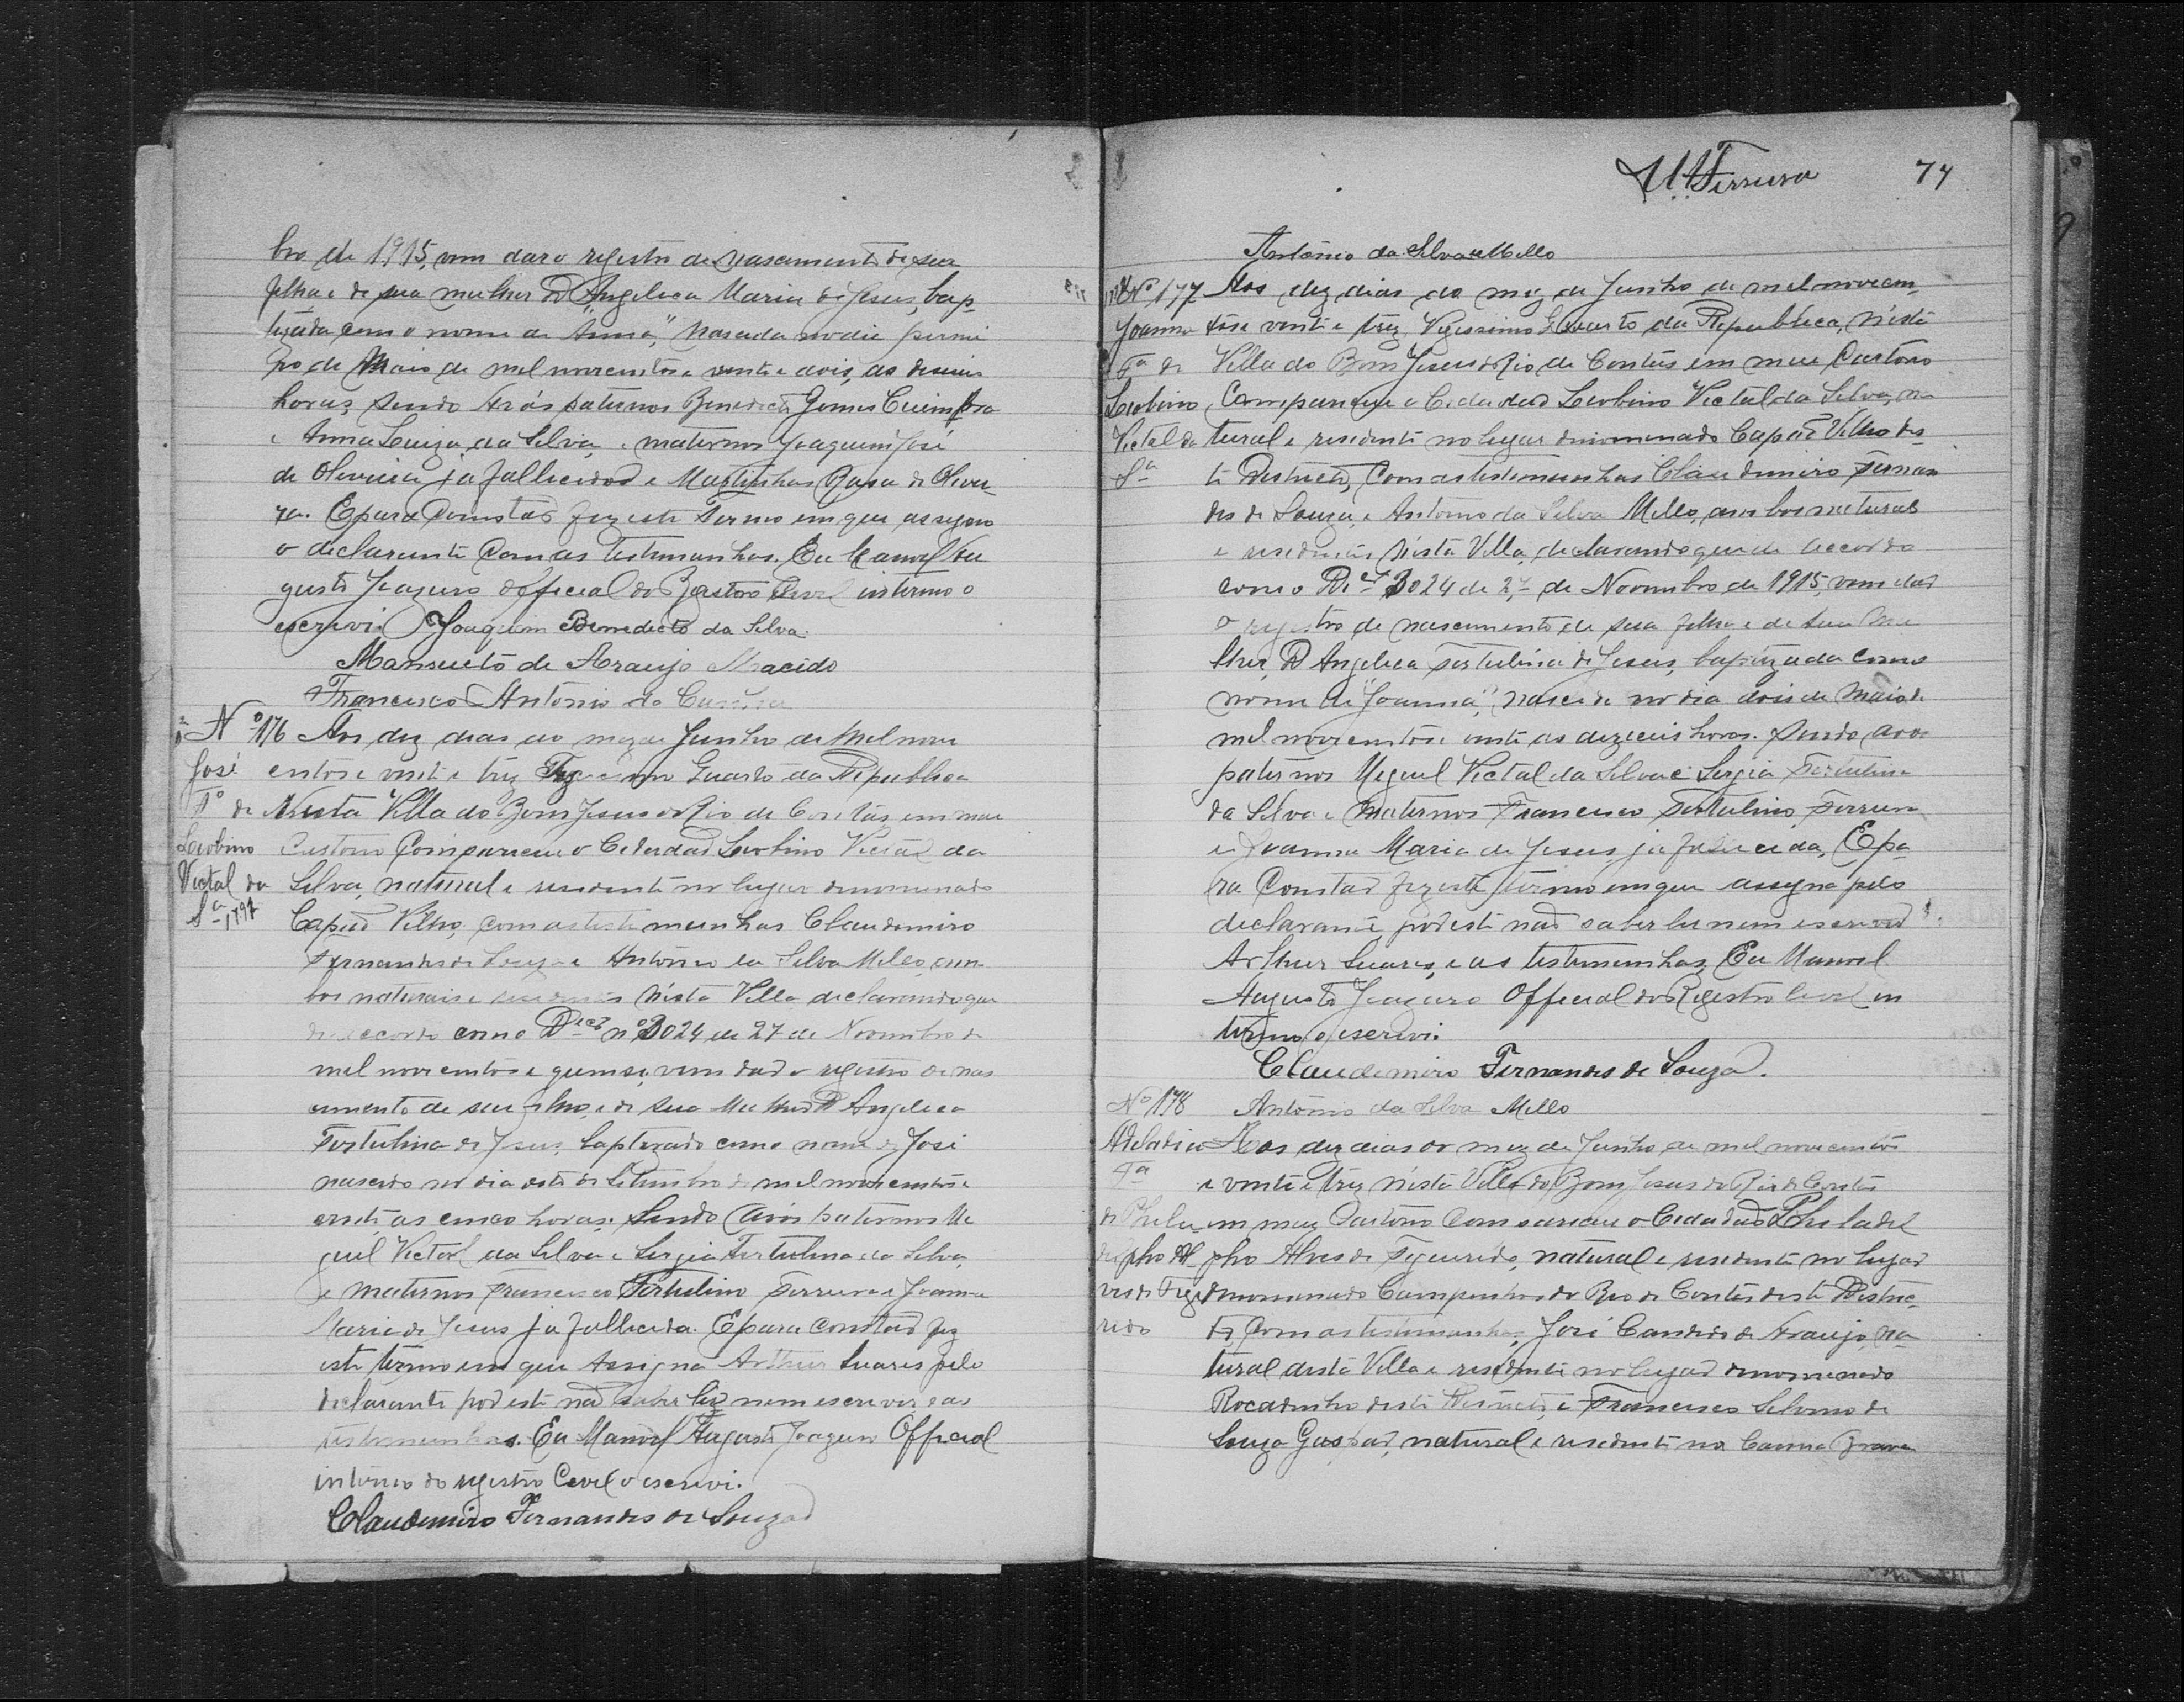 bro de 1915, vem dar o registro de nascimento de sua
filha e de sua mulher D Angelica Maria de Jesus, bap-
tizada com o nome de "Anna," nascida no dia primei
ro de Maio de mil novecentos e vinte e dois, as
horas, sendo Avós paternos Benedicto Gomes
e Anna Luiza da Silva, e maternos Joaquim José
de Oliveira ja fallecidos e Rosa de Olivei-
ra. E para Constar fiz este termo em que assigno
o declarante com as testemunhas. Eu Manoel Au
gusto official do Registro Civil interino o
escrevi. Joaquim Benedicto da Silva.
Mansueto de Araujo Macido
Francisco Antonio da
Nº 176 Aos dez dias do mez de Junho de Mil nove
José centos e vinte e trez Quarto da Republica
Fº de Nesta Villa do Bom Jesus do Rio de Contas em meu
Leobino Cartorio Compareceu o Cidadão Leobino Victal da
Victal da Silva, natural e residente no lugar denominado
Sª 1797 Capão Velho, com as testemunhas Claudemiro
Fernandes de Souza e Antonio da Silva Mello, am-
bos naturais e residentes nésta Villa declarando que
de accordo com o Decº nº 3024 de 27 de Novembro de
mil novecentos e quinze, vem dar o registro de nas
cimento de seu filho, e de sua Mulher D Angelica
Tertulina de Jesus, baptizado com o nome de José
nascido no dia sete de Setembro de mil novecentos e
as cinco horas. Sendo Avós paternos Mi
guel Victal da Silva e Sergia Tertulina da Silva,
e maternos Francisco Tertulino Ferreira e Joanna
Maria de Jesus ja fallecida. E para constar fiz
este termo em que Assigna Arthur Suares pelo
declarante por este não saber ler nem escrever, e as
testemunhas. Eu Manoel Augusto Official
interino do registro Civil o escrevi.
Claudemiro Fernandes de Souza
Ferreira 74
Antonio da Silva Mello
Nº 177 Aos dez dias do mez de Junho de mil novecen-
Joanna tos e vinte e trez Vigessimo Quarto da Republica, nésta
Fª de Villa do Bom Jesus do Rio de Contas em meu Cartorio
Leobino Compareceu o Cidadão Leobino Victal da Silva, na
Victal da tural e residente no lugar denominado Capão Velho des-
Sª te Districto, Com as testemunhas Claudemiro Fernan
des de Souza, e Antonio da Silva Mello, ambos naturaes
e residentes nésta Villa, declarando que de accordo
com o Decº 3024 de 27 de Novembro de 1915, vem dar
o registro de nascimento de sua filha e de sua Mu
lher, D Angelica Tertulina de Jesus, baptizada com o
nome de "Joanna," nascida no dia dois de Maio de
mil novecentos e vinte as dezeceis horas. Sendo avos
paternos Miguel Victal da Silva e Sergia Tertulina
da Silva e maternos Francisco Tertulino Ferreira
e Joanna Maria de Jesus ja fallecida, E pa
ra Constar fiz este termo em que assigna pelo
declarante por este não saber ler nem escrever
Arthur Suares, e as testemunhas, Eu Manoel
Augusto Official do Registro Civil in
terino o escrevi.
Claudemiro Fernandes de Souza.
Nº 178 Antonio da Silva Mello
Aos dez dias do mez de Junho de mil novecentos
Fª e vinte e trez nésta Villa do Bom Jesus do Rio de Contas
de Phila em meu Cartorio Compareceu o Cidadão Philadel
delpho Al pho Alves de Figueirêdo, natural e residente no lugar
ves de Figuei denominado Campinhos do Rio de Contas deste Distric-
redo to, Com as testemunhas, José Candido de Araujo, na-
tural desta Villa e residente no lugar denominado
Rocadinho deste Districto, e Francisco Silvino de
Souza Gaspar, natural e residente na Canna Brava